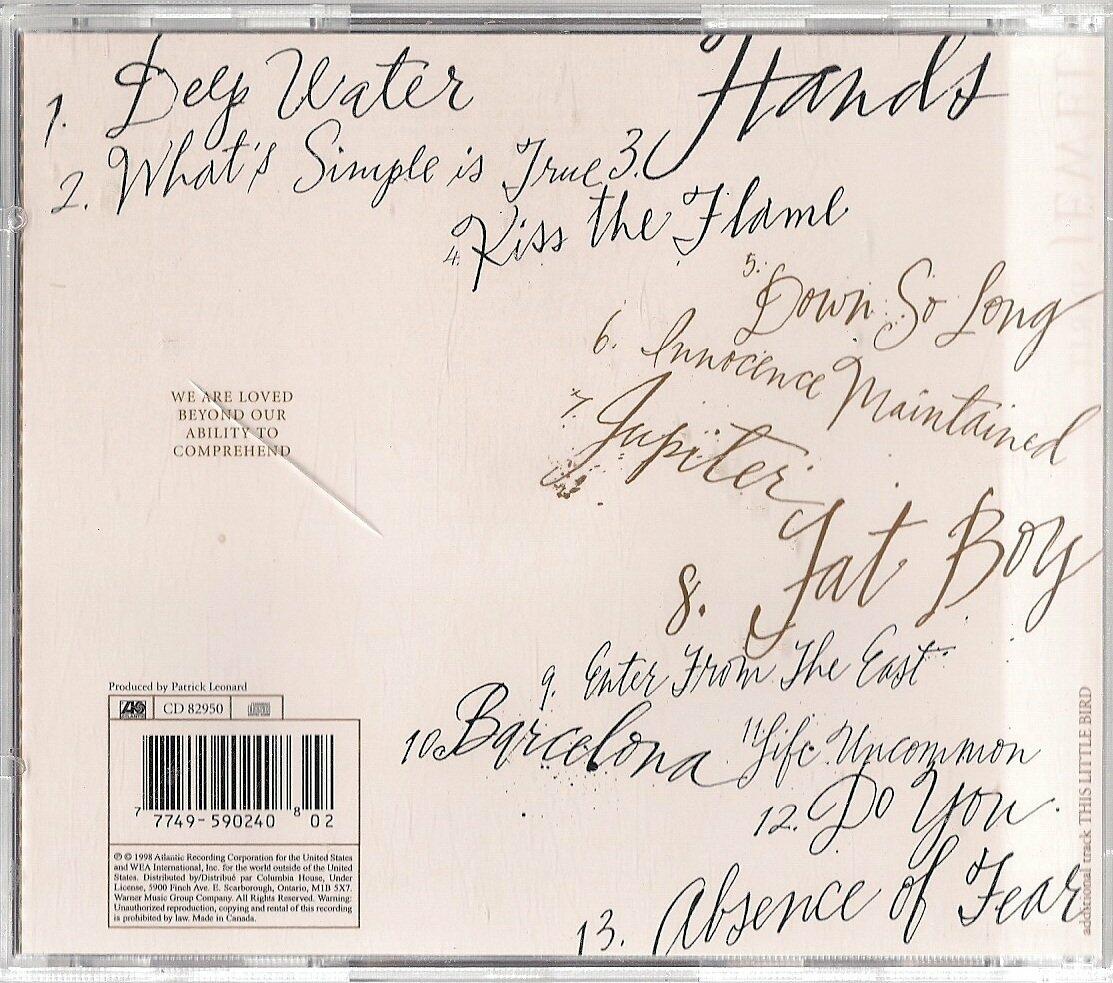 1. Deep Water
2. What's Simple is True
3. Hands
4. Kiss the Flame
5. Down So Long
6. Innocence Maintained
7. Jupiter
8. Fat Boy
9. Enter From The East
10. Barcelona
11. Life Uncommon
12. Do You
13. Absence of Fear
WE ARE LOVED
BEYOND OUR
ABILITY TO
COMPREHEND
Produced by Patrick Leonard
ATLANTIC CD 82950
7 7749-590240 8 02
℗ © 1998 Atlantic Recording Corporation for the United States
and WEA International, Inc. for the world outside of the United
States. Distributed by/Distribué par Columbia House, Under
License, 5900 Finch Ave. E. Scarborough, Ontario, M1B 5X7.
Warner Music Group Company. All Rights Reserved. Warning:
Unauthorized reproduction, copying and rental of this recording
is prohibited by law. Made in Canada.
additional track THIS LITTLE BIRD
JEWEL